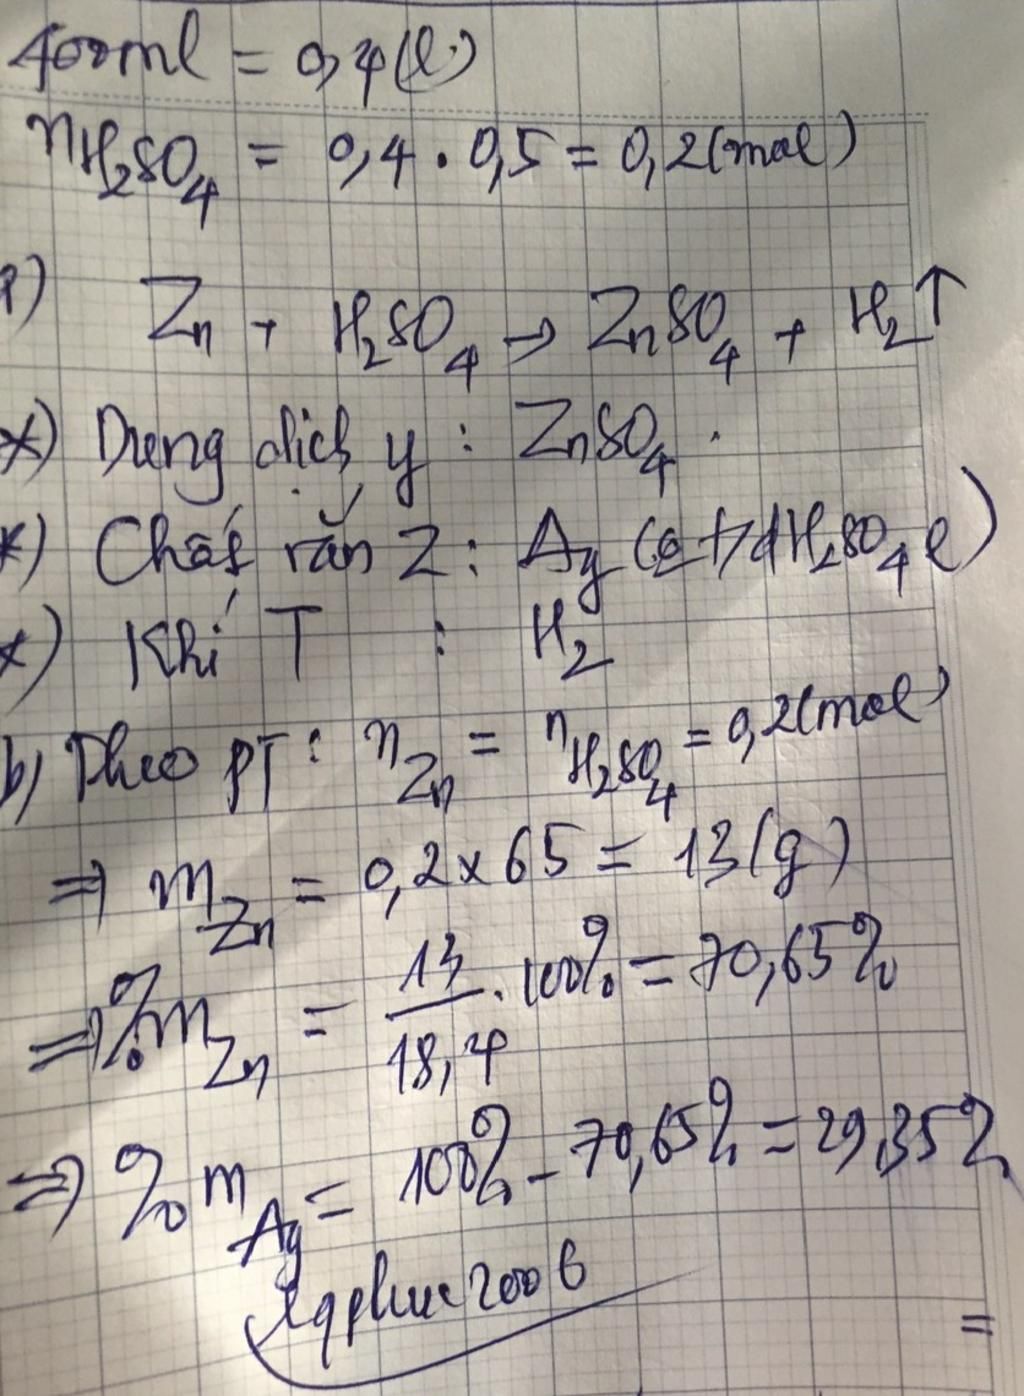 400ml = 0,4(l)
nH₂SO₄ = 0,4 . 0,5 = 0,2(mol)
a) Zn + H₂SO₄ → ZnSO₄ + H₂↑
*) Dung dịch y : ZnSO₄ .
*) Chất rắn Z : Ag (o t/d H₂SO₄ l)
*) Khí T : H₂
b) Theo PT : nZn = nH₂SO₄ = 0,2(mol)
=> mZn = 0,2 x 65 = 13(g)
=> %mZn = 13/18,4 . 100% = 70,65%
=> %mAg = 100% - 70,65% = 29,35%
lqphuc2006
=